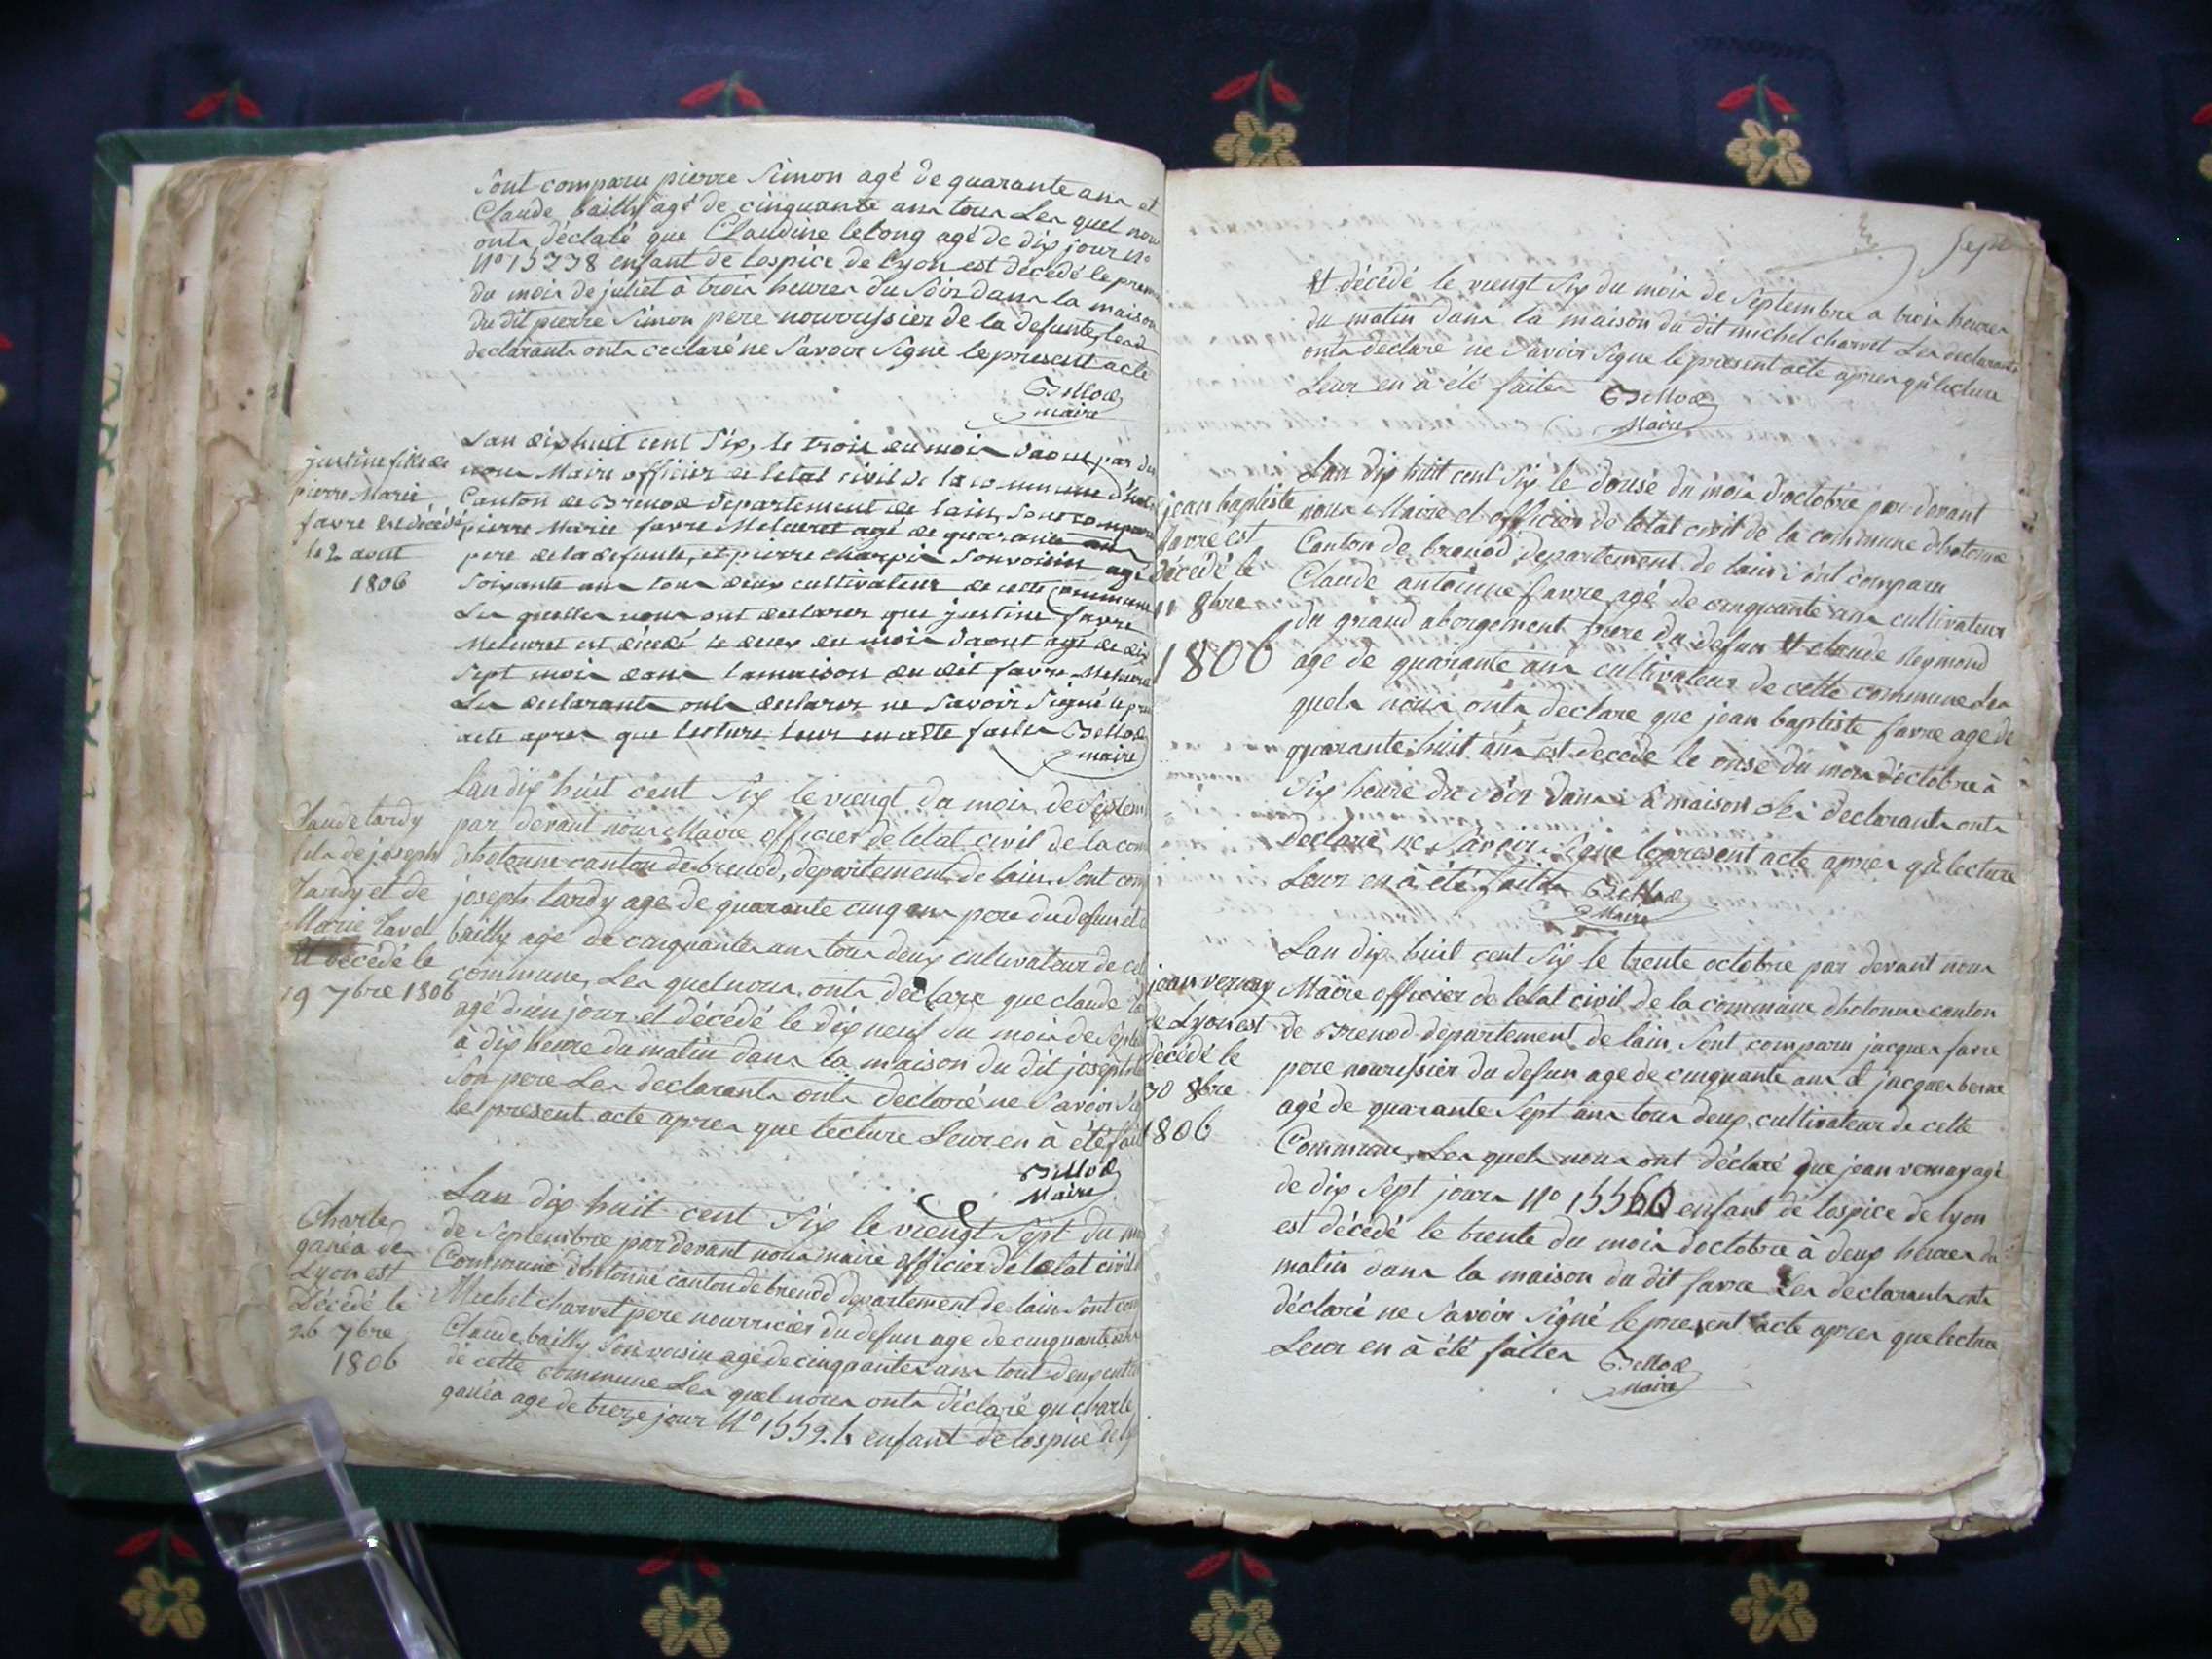 Sont comparu pierre Simon agé de quarante ans et
Claude bailly agé de cinquante ans tous Les quel nous
onts déclaré que Claudine Lelong agé de dix jour n°
N° 15238 enfant de lospice de Lyon est décédé le prem
du mois de juliet à trois heures du Soir dans la maison
du dit pierre Simon pere nourrissier de la defunte, Les d
declarants onts declaré ne Savoir Signé le present acte
Bellod
maire
justine fille de
pierre Marie
favre est décédé
le 2 aout
1806
Lan dix huit cent Six, le trois du mois daout par de
nous Maire officier de letat civil de la commune d'hoto
Canton de Brenod departement de lain, Sont comparu
pierre Marie favre Meleuret agé de quarante ans
pere de la defunte, et pierre charpin Son voisin agé
Soixante ans tous deux cultivateur de cette commune
Les quelles nous ont declarer que justine favre
Meleuret est décédé le deux du mois daout agé de dix
Sept mois dans la maison du dit favre Meleuret
Les declarants onts declarer ne Savoir Signé le pre
acte apres que lecture leur en a été faites Bellod
maire
Claude tardy
fils de joseph
tardy et de
Marie Tavel
Et décédé le
19 7bre 1806
Lan dix huit cent Six le viengt du mois de Septem
par devant nous Maire officier de letat civil de la com
dhotonne canton de brenod, departement de lain, Sont com
joseph tardy age de quarante cinq ans pere du defun et C
bailly age de cinquantes ans tous deux cultivateur de cet
commune, Les quel nous onts declare que claude ta
agé d'un jour et décédé le dix neuf du mois de Septe
à dix heure du matin dans la maison du dit joseph ta
Son pere Les declarants onts déclaré ne Savoir Sig
le present acte apres que lecture Leur en à été fait
Bellod
Maire
Charle
ganéa de
Lyon est
Décédé le
26 7bre
1806
Lan dix huit cent Six le viengt Sept du m
de Septembre par devant nous maire officier de letat civil d
Commune dhotonne canton de brenod departement de lain Sont com
Michel charvet pere nourricier du defun age de cinquante ans
Claude bailly Son voisin agé de cinquantes ans tout deux culti
de cette commune Les quel nous onts déclaré qu charle
ganéa age de treize jour N° 15524 enfant de lospice de ly
Sept
Et décédé le viengt Six du mois de Septembre a trois heures
du matin dans la maison du dit michel charvet Les declarants
onts declaré ne Savoir Signe le present acte apres qu'lecture
Leur en à été faites Bellod
Maire
jean baptiste
favre est
décédé le
11 8bre
1806
Lan dix huit cent Six le douse du mois d'octobre par devant
nous Maire et officier de letat civil de la commune dhotonne
Canton de brenod, departement de lain, ont comparu
Claude antoinne favre agé de cinquante ans cultivateur
du grand abergement frere du defun Et claude Reymond
age de quarante ans cultivateur de cette commune Les
quels nous onts declare que jean baptiste favre age de
quarante huit ans est decede le onse du mois d'octobre à
Six heure du Soir dans Sa maison Les declarants onts
declare ne Savoir Signe le present acte apres qu'lecture
Leur en à été faites Bellod
Maire
jean vernay
de Lyon est
décédé le
30 8bre
1806
Lan dix huit cent Six le trente octobre par devant nous
Maire officier de letat civil de la commune dhotonne canton
de Brenod departement de lain, Sont comparu jacques favre
pere nourissier du defun age de cinquante ans et jacques berne
agé de quarante Sept ans tous deux cultivateur de cette
Commune, Les quels nous ont déclaré que jean vernay agé
de dix Sept jours N° 15560 enfant de lospice de lyon
est décédé le trente du mois doctobre à deux heures du
matin dans la maison du dit favre Les declarants onts
déclaré ne Savoir Signé le present acte apres que lecture
Leur en à été faites Bellod
Maire